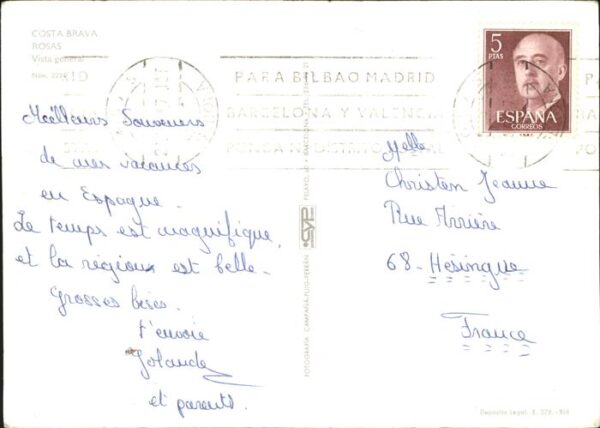 COSTA BRAVA
ROSAS
Vista general
Núm.
PARA BILBAO MADRID
BARCELONA Y VALENCIA
PONGA Nº DISTRITO POSTAL
5
PTAS
ESPAÑA
CORREOS
Meilleurs Souvenirs
de mes vacances
en Espagne.
Le temps est magnifique,
et la région est belle.
Grosses bises.
t'envoie
Yolande
et parents.
Melle
Christen Jeanne
Rue Arrière
68 - Hésingue
France
CYP
FOTOGRAFIA CAMPAÑA-PUIG-FERRAN
Depósito Legal. B.